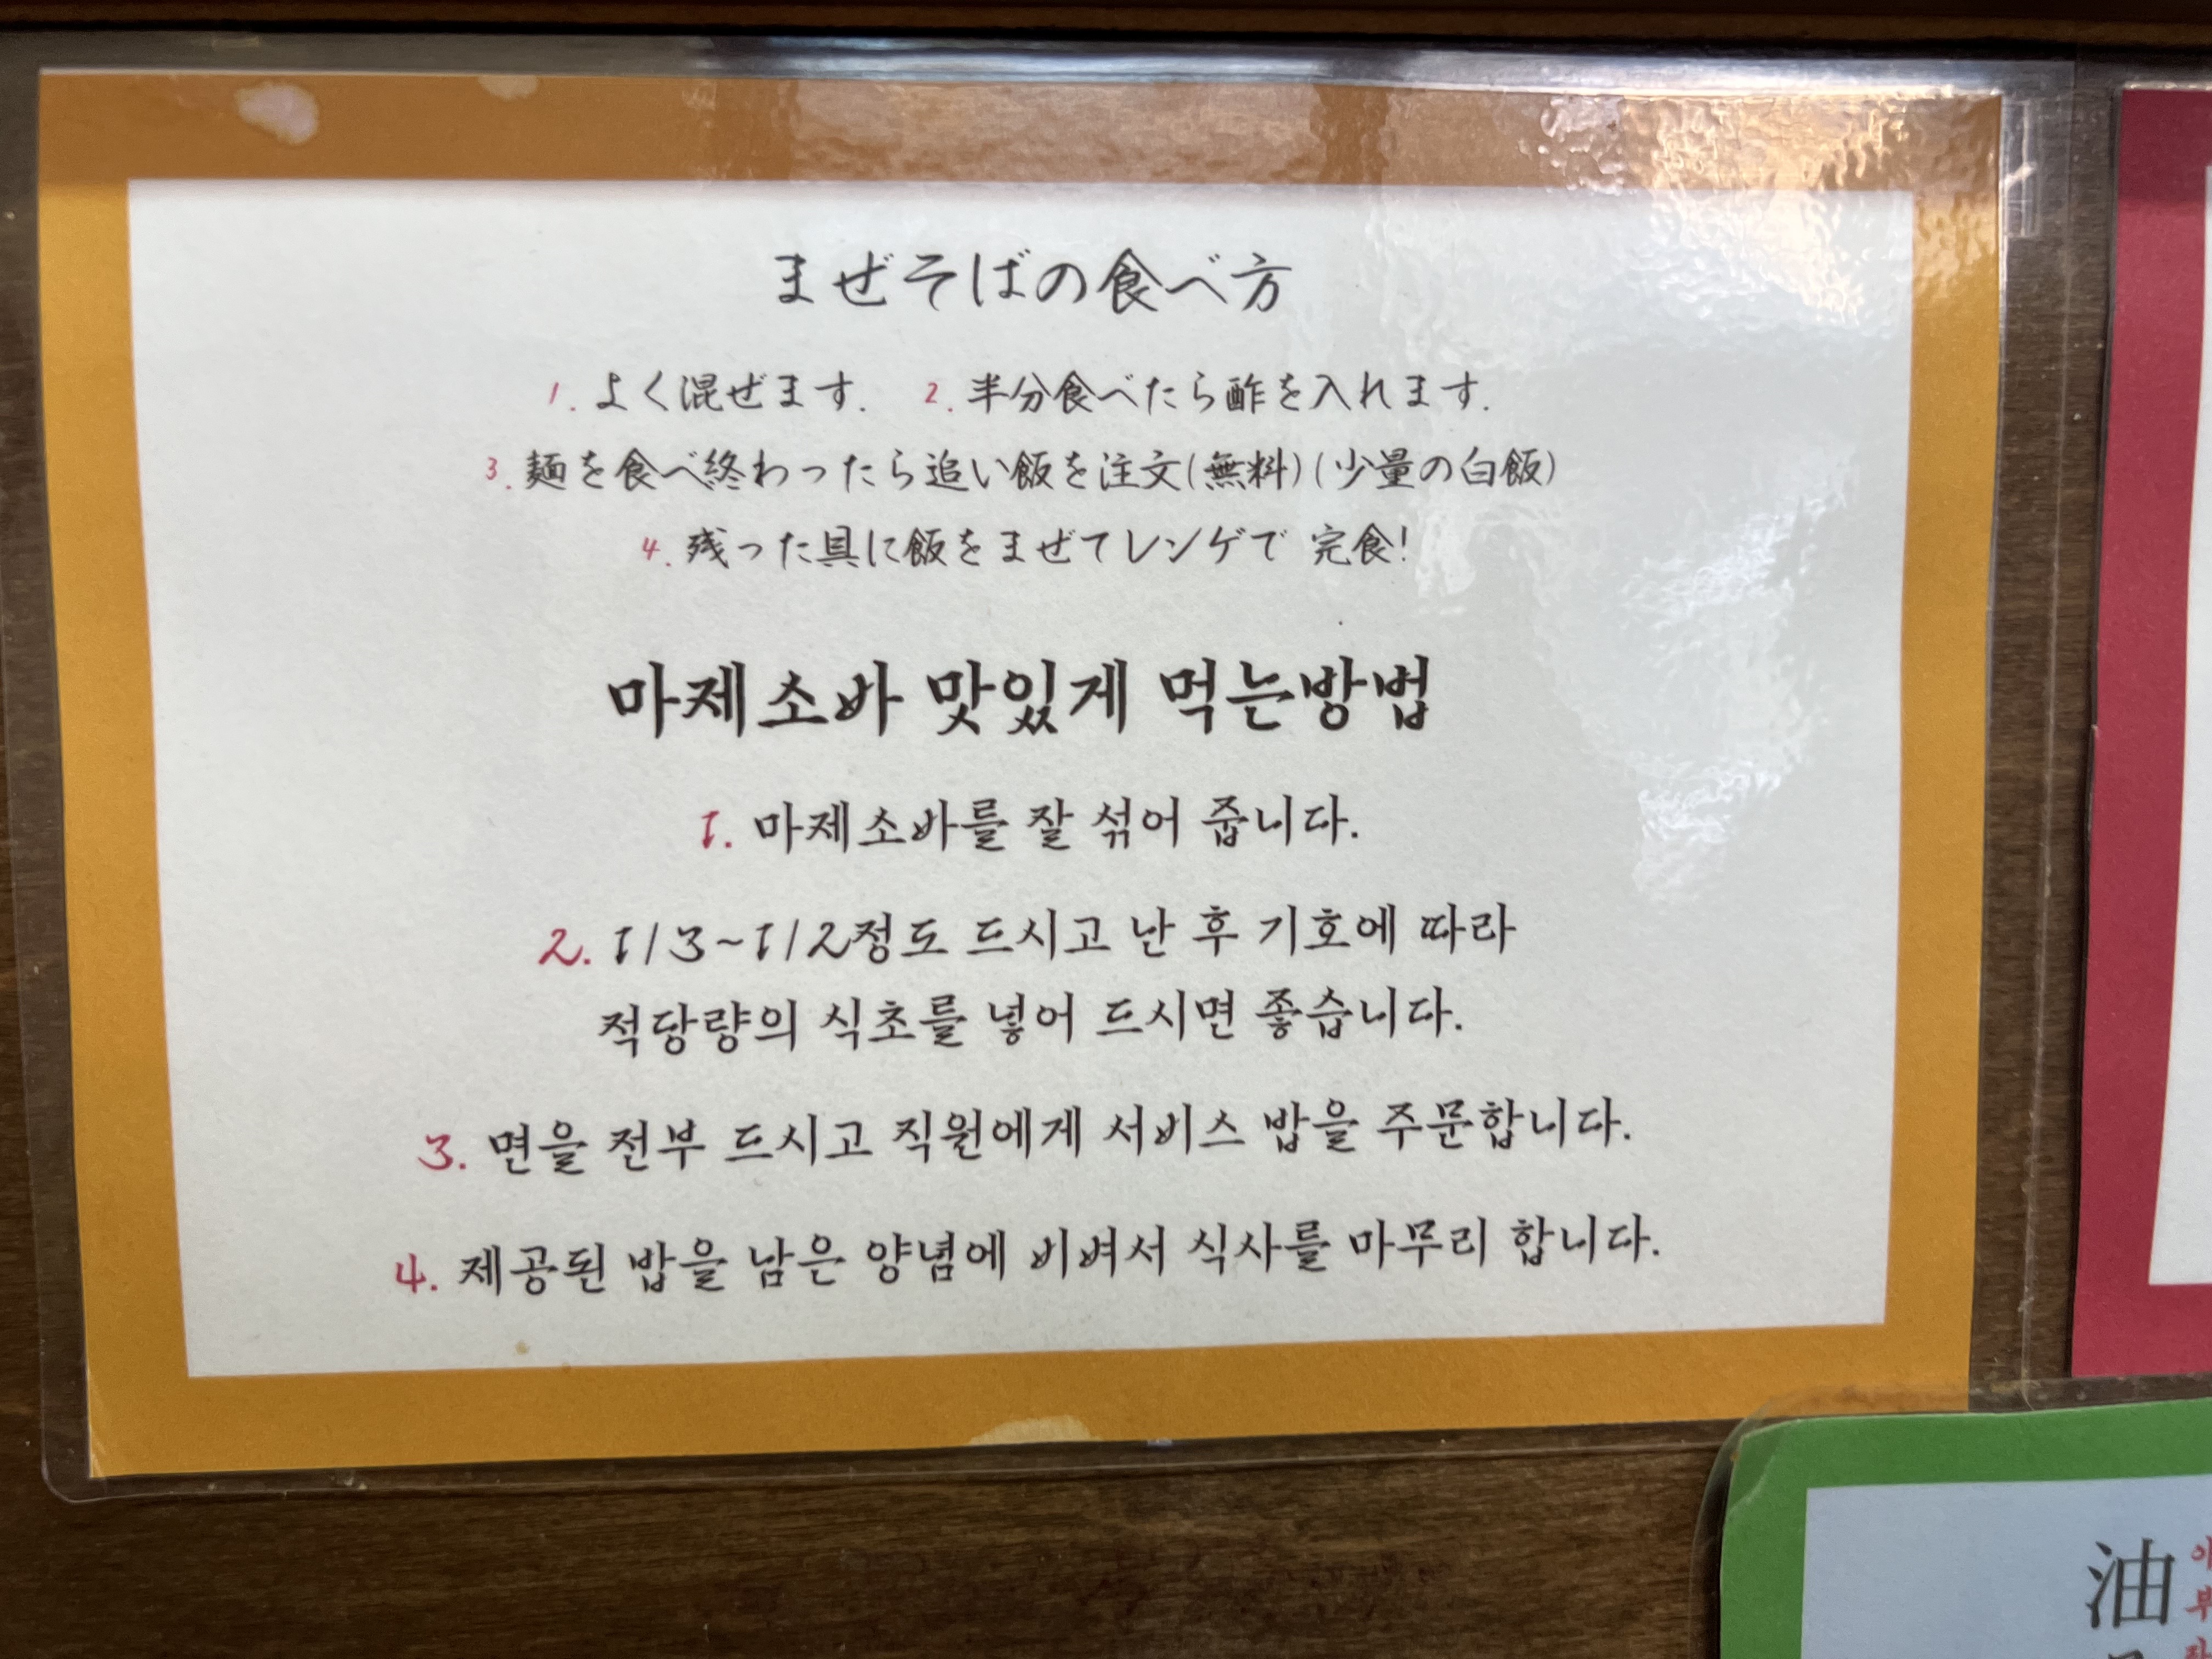 まぜそばの食べ方
1. よく混ぜます. 2. 半分食べたら酢を入れます.
3. 麺を食べ終わったら追い飯を注文(無料)(少量の白飯)
4. 残った具に飯をまぜてレンゲで 完食!
마제소바 맛있게 먹는방법
1. 마제소바를 잘 섞어 줍니다.
2. 1/3~1/2정도 드시고 난 후 기호에 따라
적당량의 식초를 넣어 드시면 좋습니다.
3. 면을 전부 드시고 직원에게 서비스 밥을 주문합니다.
4. 제공된 밥을 남은 양념에 비벼서 식사를 마무리 합니다.
油